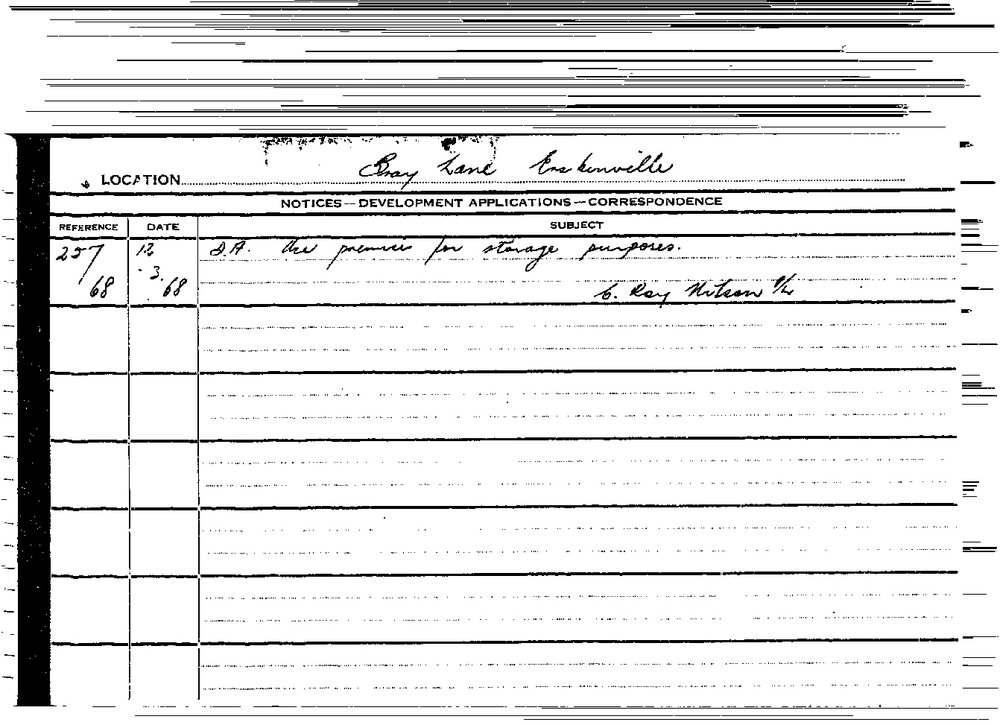 LOCATION Bray Lane Erskineville
NOTICES—DEVELOPMENT APPLICATIONS—CORRESPONDENCE
REFERENCE DATE SUBJECT
257/68 12.3.68 D.A. Use premises for storage purposes.
C. Roy Wilson P/L